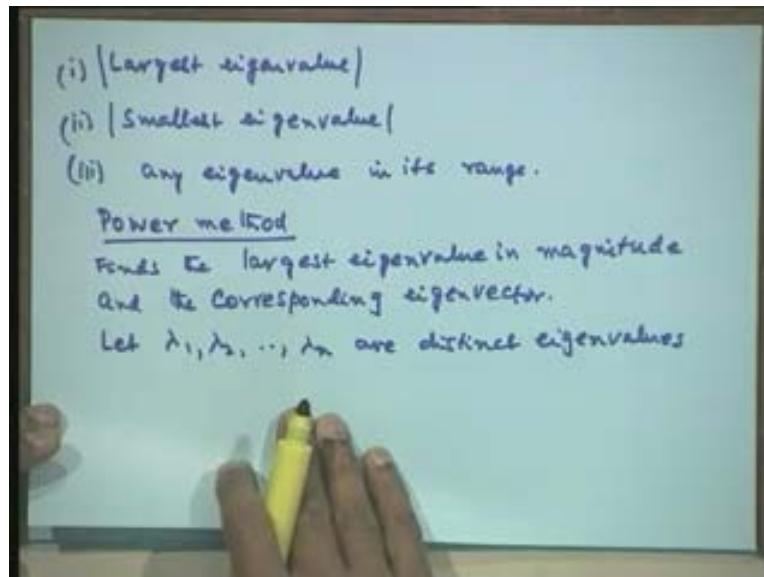 (i) |Largest eigenvalue|
(ii) |Smallest eigenvalue|
(iii) any eigenvalue in its range.
Power method
Finds the largest eigenvalue in magnitude
and the corresponding eigenvector.
Let λ₁, λ₂, .., λₙ are distinct eigenvalues